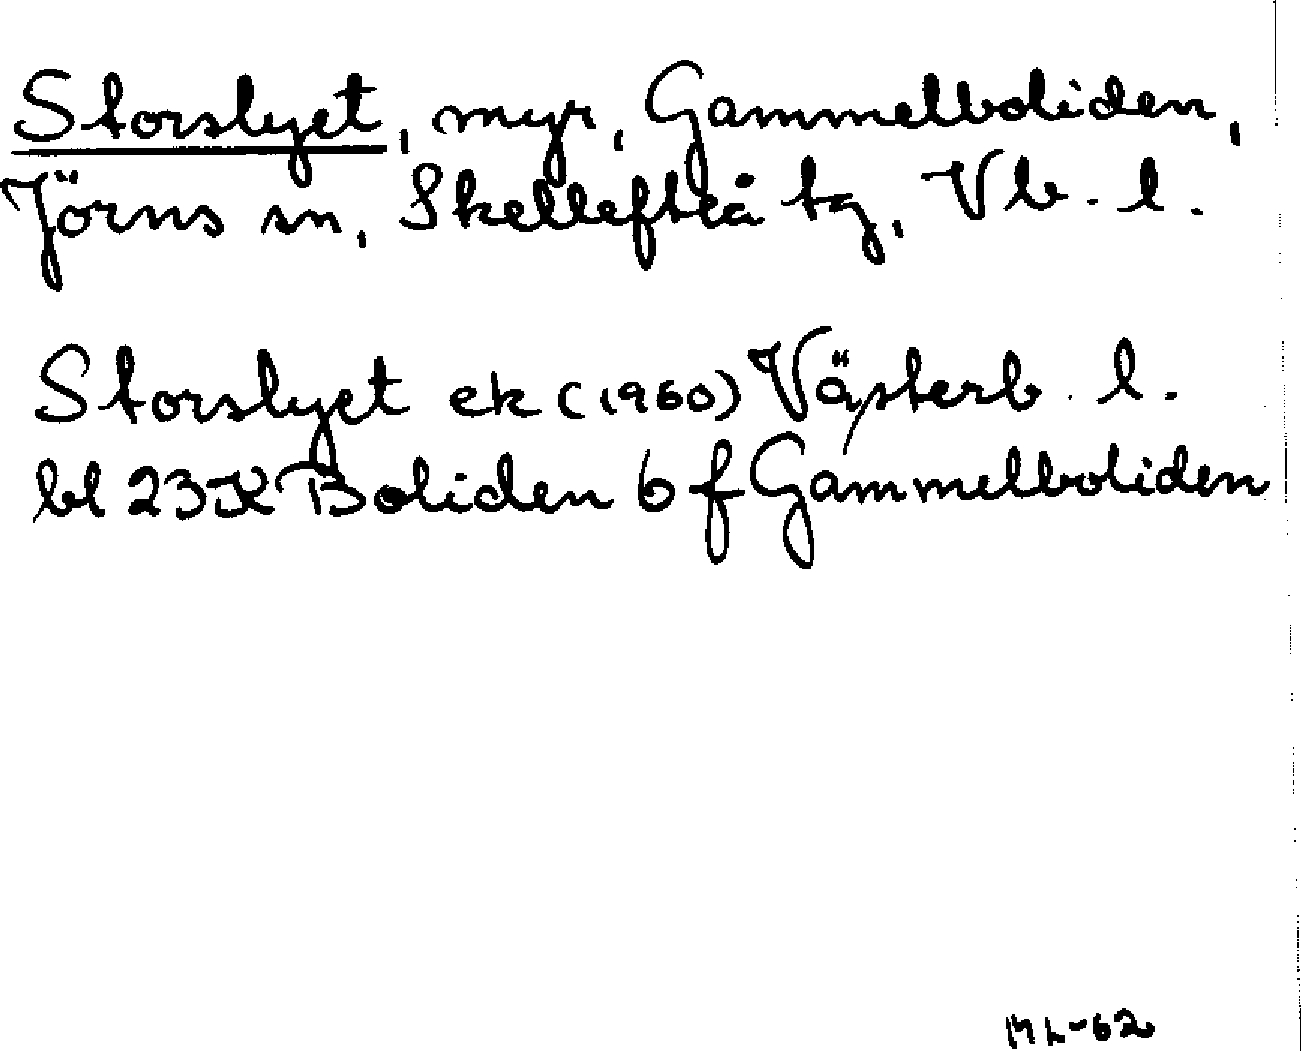 Storslyet, myr, Gammelboliden,
Jörns sn, Skellefteå tg, Vb. l.
Storslyet ek (1960) Västerb. l.
bl 23K Boliden 6 f Gammelboliden
ML-62